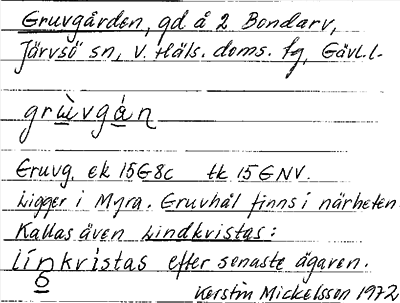 Gruvgården, gd å 2 Bondarv,
Järvsö sn, V. Häls. doms. fg, Gävl.l.
grùvgán
Gruvg. ek 15G8c tk 15GNV.
Ligger i Myra. Gruvhål finns i närheten.
Kallas även Lindkristas:
línkristas efter senaste ägaren.
ò
Kerstin Mickelsson 1972